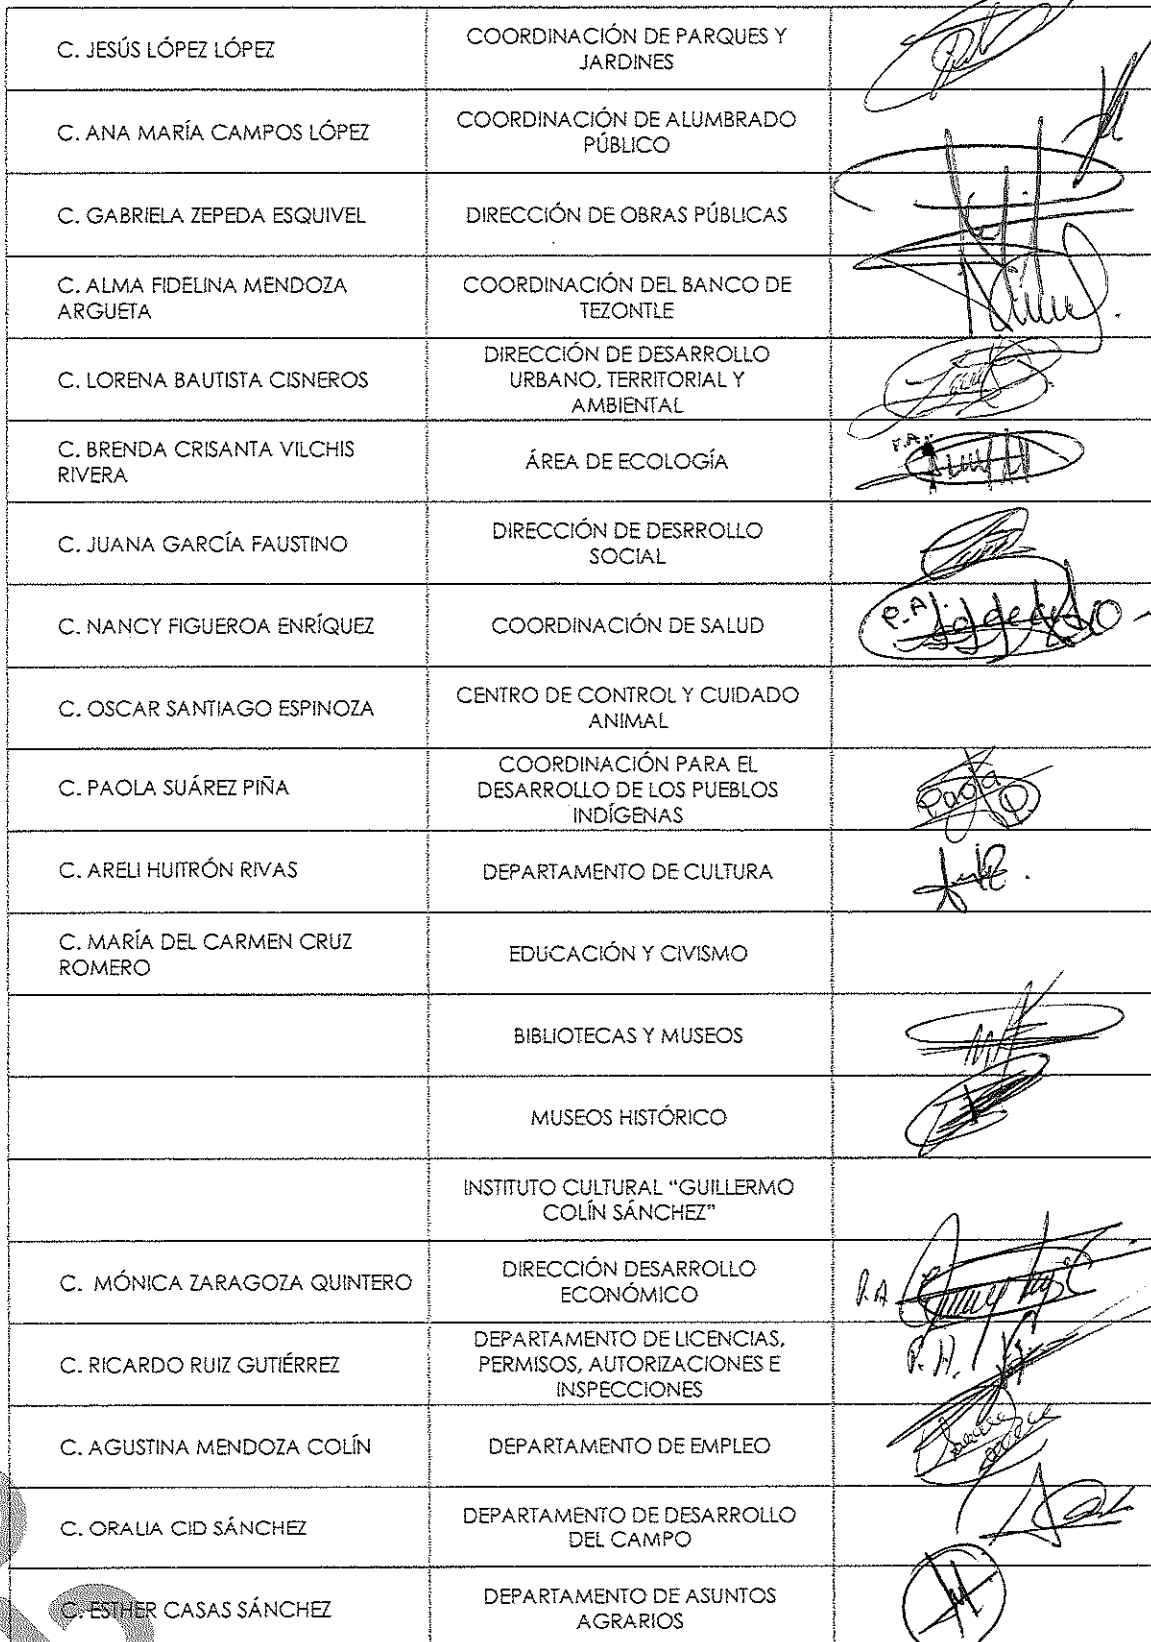 C. JESÚS LÓPEZ LÓPEZ
COORDINACIÓN DE PARQUES Y
JARDINES
C. ANA MARÍA CAMPOS LÓPEZ
COORDINACIÓN DE ALUMBRADO
PÚBLICO
C. GABRIELA ZEPEDA ESQUIVEL
DIRECCIÓN DE OBRAS PÚBLICAS
C. ALMA FIDELINA MENDOZA
ARGUETA
COORDINACIÓN DEL BANCO DE
TEZONTLE
C. LORENA BAUTISTA CISNEROS
DIRECCIÓN DE DESARROLLO
URBANO, TERRITORIAL Y
AMBIENTAL
C. BRENDA CRISANTA VILCHIS
RIVERA
ÁREA DE ECOLOGÍA
P.A
C. JUANA GARCÍA FAUSTINO
DIRECCIÓN DE DESRROLLO
SOCIAL
C. NANCY FIGUEROA ENRÍQUEZ
COORDINACIÓN DE SALUD
P.A
C. OSCAR SANTIAGO ESPINOZA
CENTRO DE CONTROL Y CUIDADO
ANIMAL
C. PAOLA SUÁREZ PIÑA
COORDINACIÓN PARA EL
DESARROLLO DE LOS PUEBLOS
INDÍGENAS
Paola
C. ARELI HUITRÓN RIVAS
DEPARTAMENTO DE CULTURA
C. MARÍA DEL CARMEN CRUZ
ROMERO
EDUCACIÓN Y CIVISMO
BIBLIOTECAS Y MUSEOS
MUSEOS HISTÓRICO
INSTITUTO CULTURAL “GUILLERMO
COLÍN SÁNCHEZ”
C. MÓNICA ZARAGOZA QUINTERO
DIRECCIÓN DESARROLLO
ECONÓMICO
P.A
C. RICARDO RUIZ GUTIÉRREZ
DEPARTAMENTO DE LICENCIAS,
PERMISOS, AUTORIZACIONES E
INSPECCIONES
P.A.
C. AGUSTINA MENDOZA COLÍN
DEPARTAMENTO DE EMPLEO
C. ORALIA CID SÁNCHEZ
DEPARTAMENTO DE DESARROLLO
DEL CAMPO
C. ESTHER CASAS SÁNCHEZ
DEPARTAMENTO DE ASUNTOS
AGRARIOS